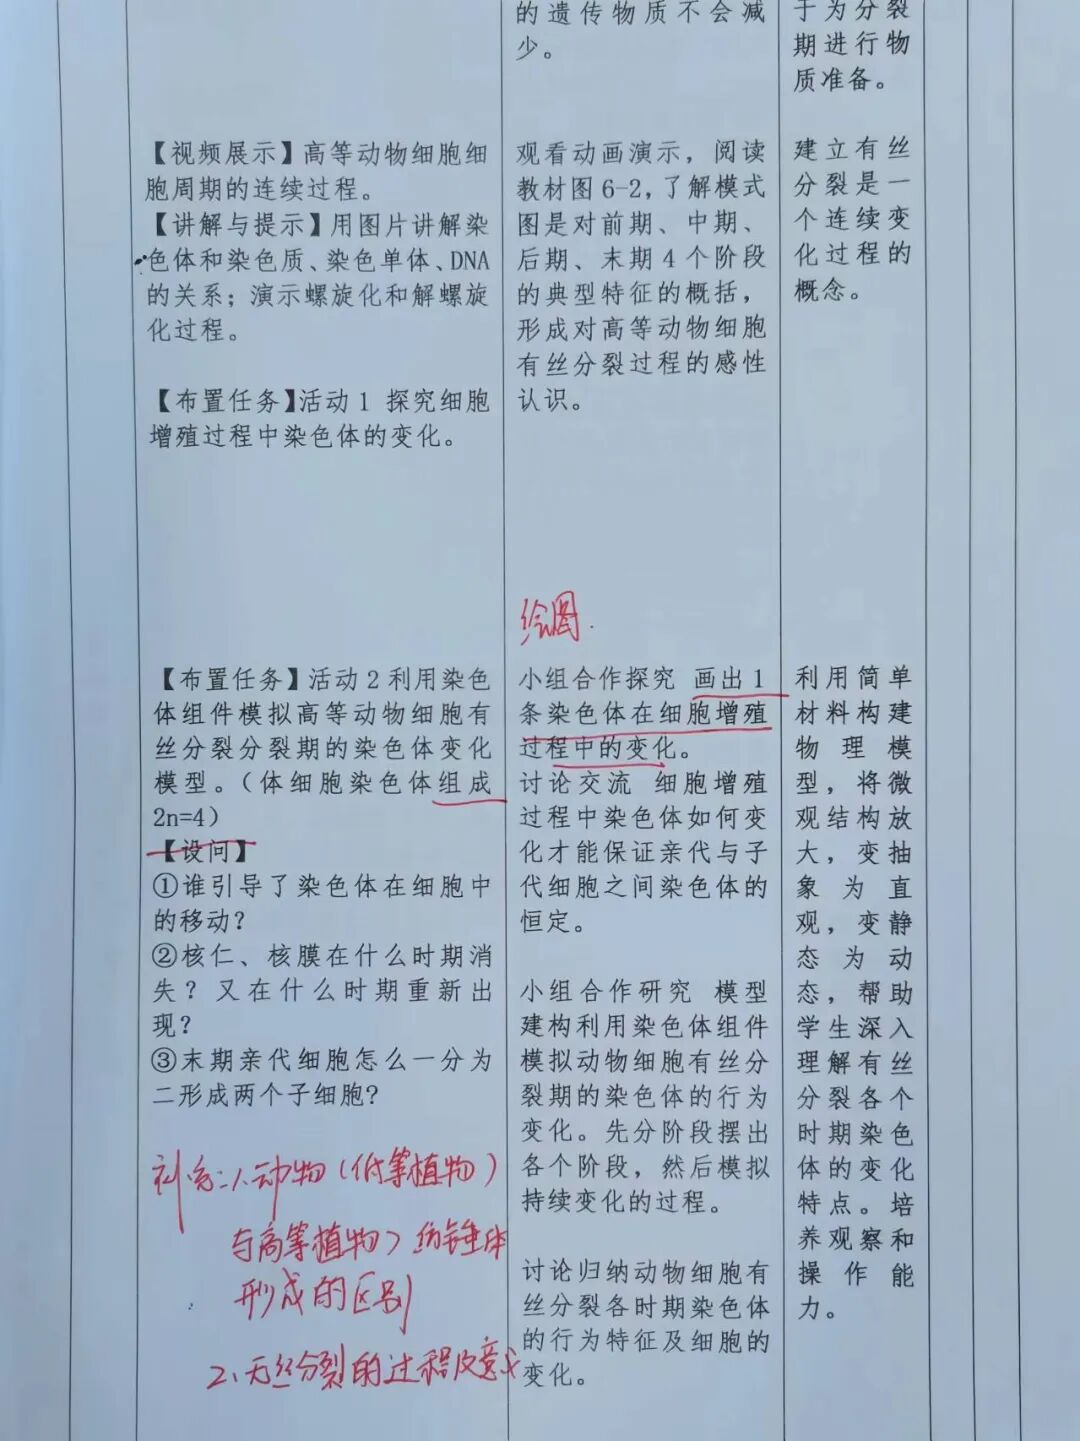 的遗传物质不会减
少。
于为分裂
期进行物
质准备。
【视频展示】高等动物细胞细
胞周期的连续过程。
【讲解与提示】用图片讲解染
色体和染色质、染色单体、DNA
的关系；演示螺旋化和解螺旋
化过程。
【布置任务】活动1 探究细胞
增殖过程中染色体的变化。
观看动画演示，阅读
教材图6-2，了解模式
图是对前期、中期、
后期、末期4个阶段
的典型特征的概括，
形成对高等动物细胞
有丝分裂过程的感性
认识。
建立有丝
分裂是一
个连续变
化过程的
概念。
绘图.
【布置任务】活动2利用染色
体组件模拟高等动物细胞有
丝分裂分裂期的染色体变化
模型。（体细胞染色体组成
2n=4）
【设问】
①谁引导了染色体在细胞中
的移动？
②核仁、核膜在什么时期消
失？又在什么时期重新出
现？
③末期亲代细胞怎么一分为
二形成两个子细胞？
补充：1.动物（低等植物）
与高等植物 纺锤体
形成的区别
2、无丝分裂的过程及意义
小组合作探究 画出1
条染色体在细胞增殖
过程中的变化。
讨论交流 细胞增殖
过程中染色体如何变
化才能保证亲代与子
代细胞之间染色体的
恒定。
小组合作研究 模型
建构利用染色体组件
模拟动物细胞有丝分
裂期的染色体的行为
变化。先分阶段摆出
各个阶段，然后模拟
持续变化的过程。
讨论归纳动物细胞有
丝分裂各时期染色体
的行为特征及细胞的
变化。
利用简单
材料构建
物理模
型，将微
观结构放
大，变抽
象为直
观，变静
态为动
态，帮助
学生深入
理解有丝
分裂各个
时期染色
体的变化
特点。培
养观察和
操作能
力。